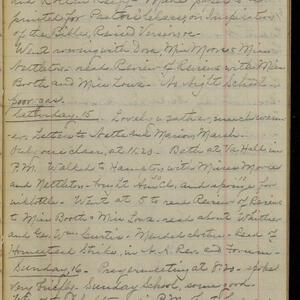 printed for Pastors Class, on Inspiration
of the Bible, Revised Version.
Went rowing with Dora, Miss Moore & Miss
Nettleton. read Review of Reviews with Miss
Booth and Miss Lowe. No Night School
poor gas.
Saturday, 15. Lovely weather, much warm-
er. Letters to Nette and Marion March.
Only one class, at 11.20. Bath at Va. Hall in
P.M. Walked to Hampton with Misses Moore
and Nettleton. and sponge for
Went at 5 to read Review of Reviews
to Miss Booth & Miss Lowe. read about Whittier
and Geo. Wm. Curtis. Mended clothes. Read of
Homestead Strike, in N. A. Rev. and Forum.
Sunday, 16. Prayer meeting at 8.30. spoke
very briefly. Sunday School, some good